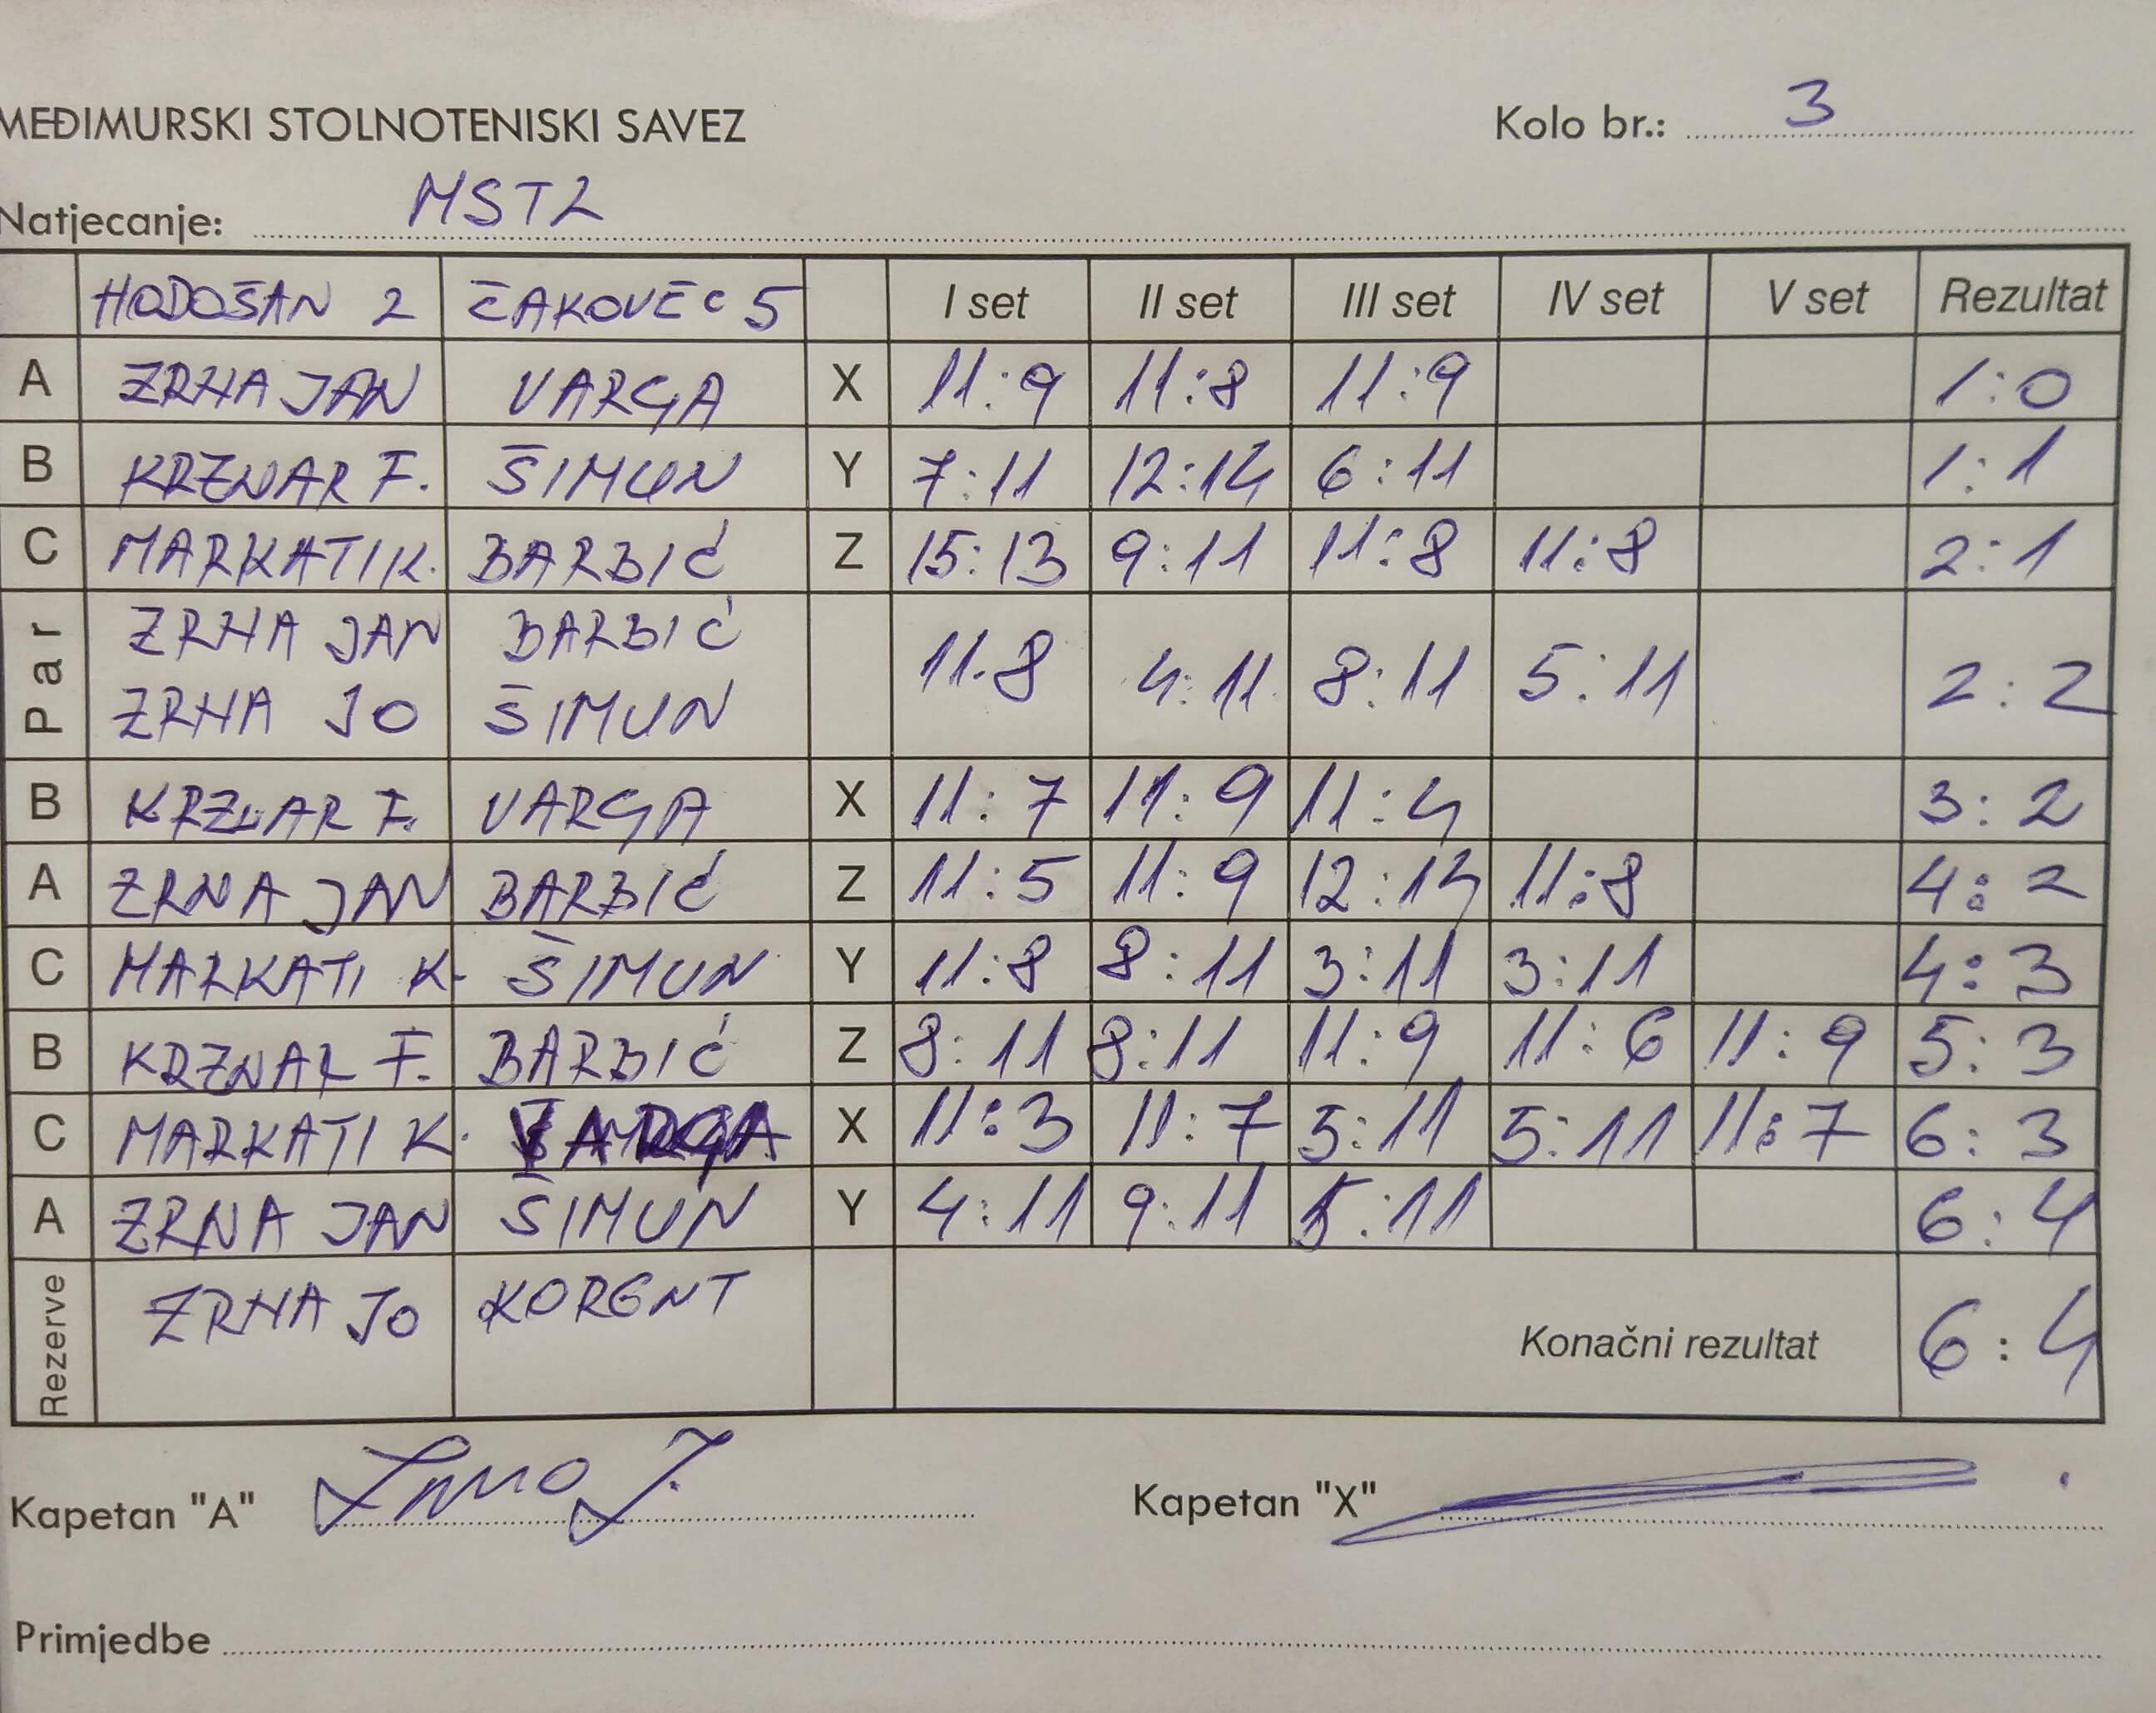 MEĐIMURSKI STOLNOTENISKI SAVEZ Kolo br.: 3
Natjecanje: MSTL
HODOŠAN 2 ČAKOVEC 5 I set II set III set IV set V set Rezultat
A ZRNA JAN VARGA X 11:9 11:8 11:9 1:0
B KRZNAR F. ŠIMUN Y 7:11 12:14 6:11 1:1
C MARKATI K. BARBIĆ Z 15:13 9:11 11:8 11:8 2:1
Par ZRNA JAN BARBIĆ 11.8 4:11 8:11 5:11 2:2
ZRNA JO ŠIMUN
B KRZNAR F. VARGA X 11:7 11:9 11:4 3:2
A ZRNA JAN BARBIĆ Z 11:5 11:9 12:14 11:8 4:2
C MARKATI K. ŠIMUN Y 11:8 8:11 3:11 3:11 4:3
B KRZNAR F. BARBIĆ Z 8:11 8:11 11:9 11:6 11:9 5:3
C MARKATI K. VARGA X 11:3 11:7 5:11 5:11 11:7 6:3
A ZRNA JAN ŠIMUN Y 4:11 9:11 5:11 6:4
Rezerve ZRNA JO KORENT Konačni rezultat 6:4
Kapetan "A" Kapetan "X"
Primjedbe